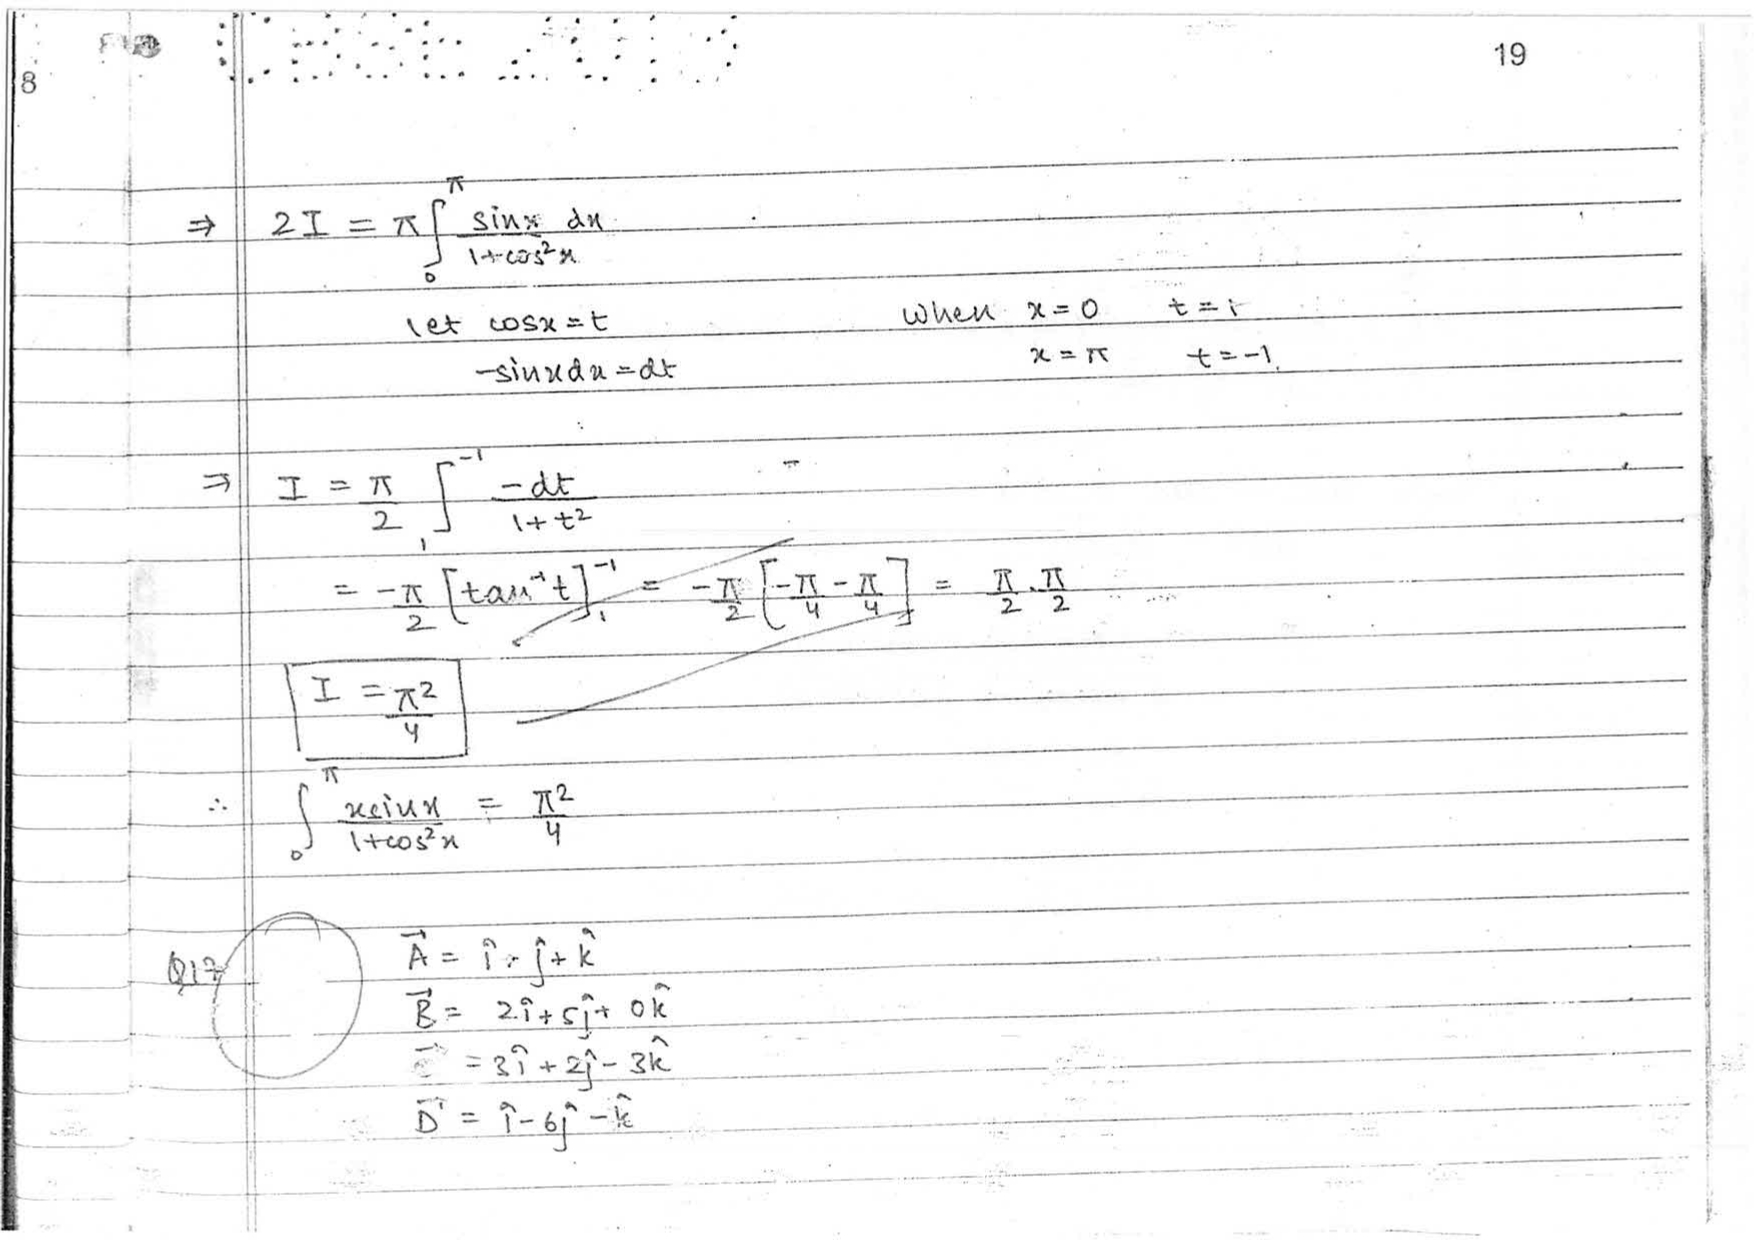 8
19
⇒ 2I = π ∫₀^π sinx dx / 1+cos²x
let cosx = t    When x=0    t=1
-sinxdx = dt    x=π    t=-1
⇒ I = π/2 ∫₁^-1 -dt / 1+t²
= -π/2 [tan⁻¹t]₁^-1 = -π/2 [-π/4 - π/4] = π/2 . π/2
I = π²/4
∴ ∫₀^π xsinx / 1+cos²x = π²/4
Q17    A⃗ = î + ĵ + k̂
B⃗ = 2î + 5ĵ + 0k̂
= 3î + 2ĵ - 3k̂
D⃗ = î - 6ĵ - k̂